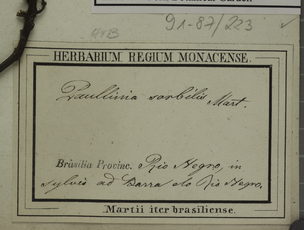 91-87/223
HERBARIUM REGIUM MONACENSE.
Paullinia sorbilis, Mart.
Brasilia Provinc. Rio Negro, in
sylvis ad Barra do Rio Negro.
Martii iter brasiliense.